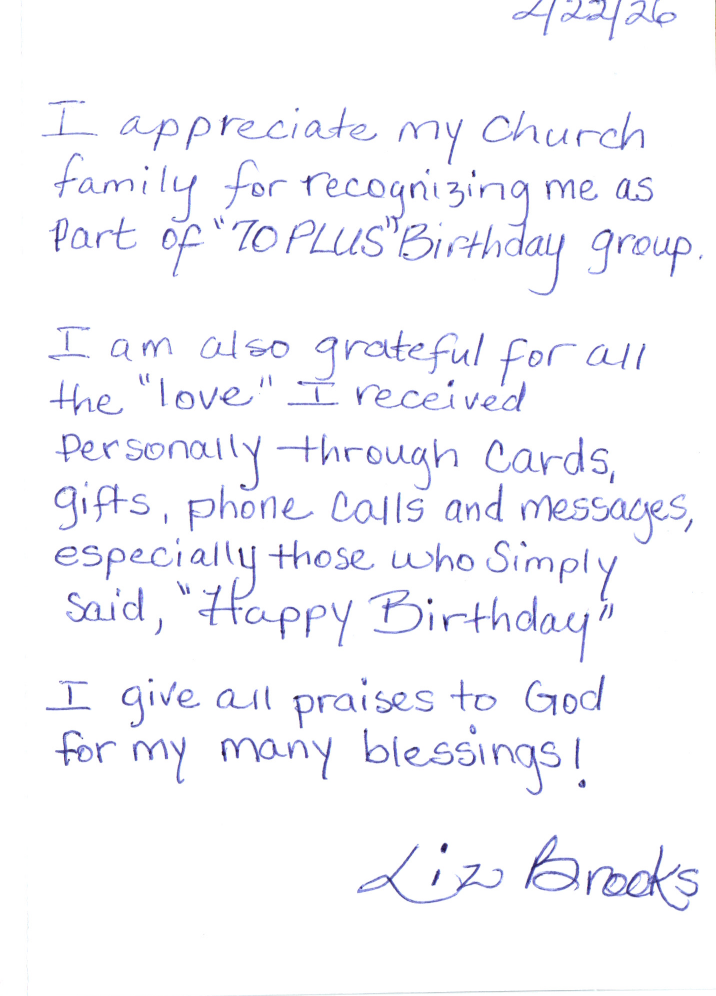 2/22/26
I appreciate my Church
family for recognizing me as
Part of "70 PLUS" Birthday group.
I am also grateful for all
the "love" I received
Personally through Cards,
gifts, phone Calls and messages,
especially those who Simply
Said, "Happy Birthday"
I give all praises to God
for my many blessings!
Liz Brooks